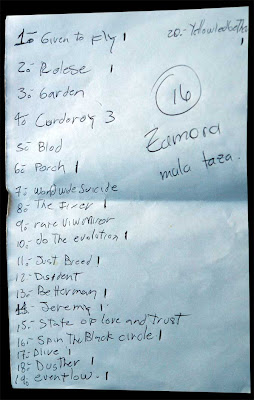 1.- Given to Fly 1
2.- Ralese 1
3.- Garden
4.- Corduroy 3
5.- Blod
6.- Porch 1
7.- worldwide Suicide
8.- The fixer 1
9.- rare Viwmirror
10.- do The evolution 1
11.- Just Breed 1
12.- Disident
13.- Betterman 1
14.- Jeremy 1
15.- State of love and trust
16.- Spin The Black circle 1
17.- Alive 1
18.- Dusther 1
19.- evenflow. 1
20.- Yellowledbether 1
16
Zamora
mala taza.